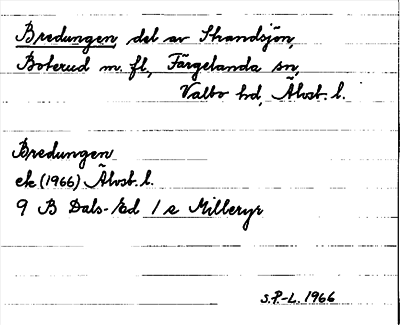 Bredungen, del av Strandsjön,
Boterud m. fl., Färgelanda sn,
Valbo hd, Älvsb. l.
Bredungen
ek (1966) Älvsb. l.
9 B Dals-Ed 1 e Milleryr
S.P-L. 1966